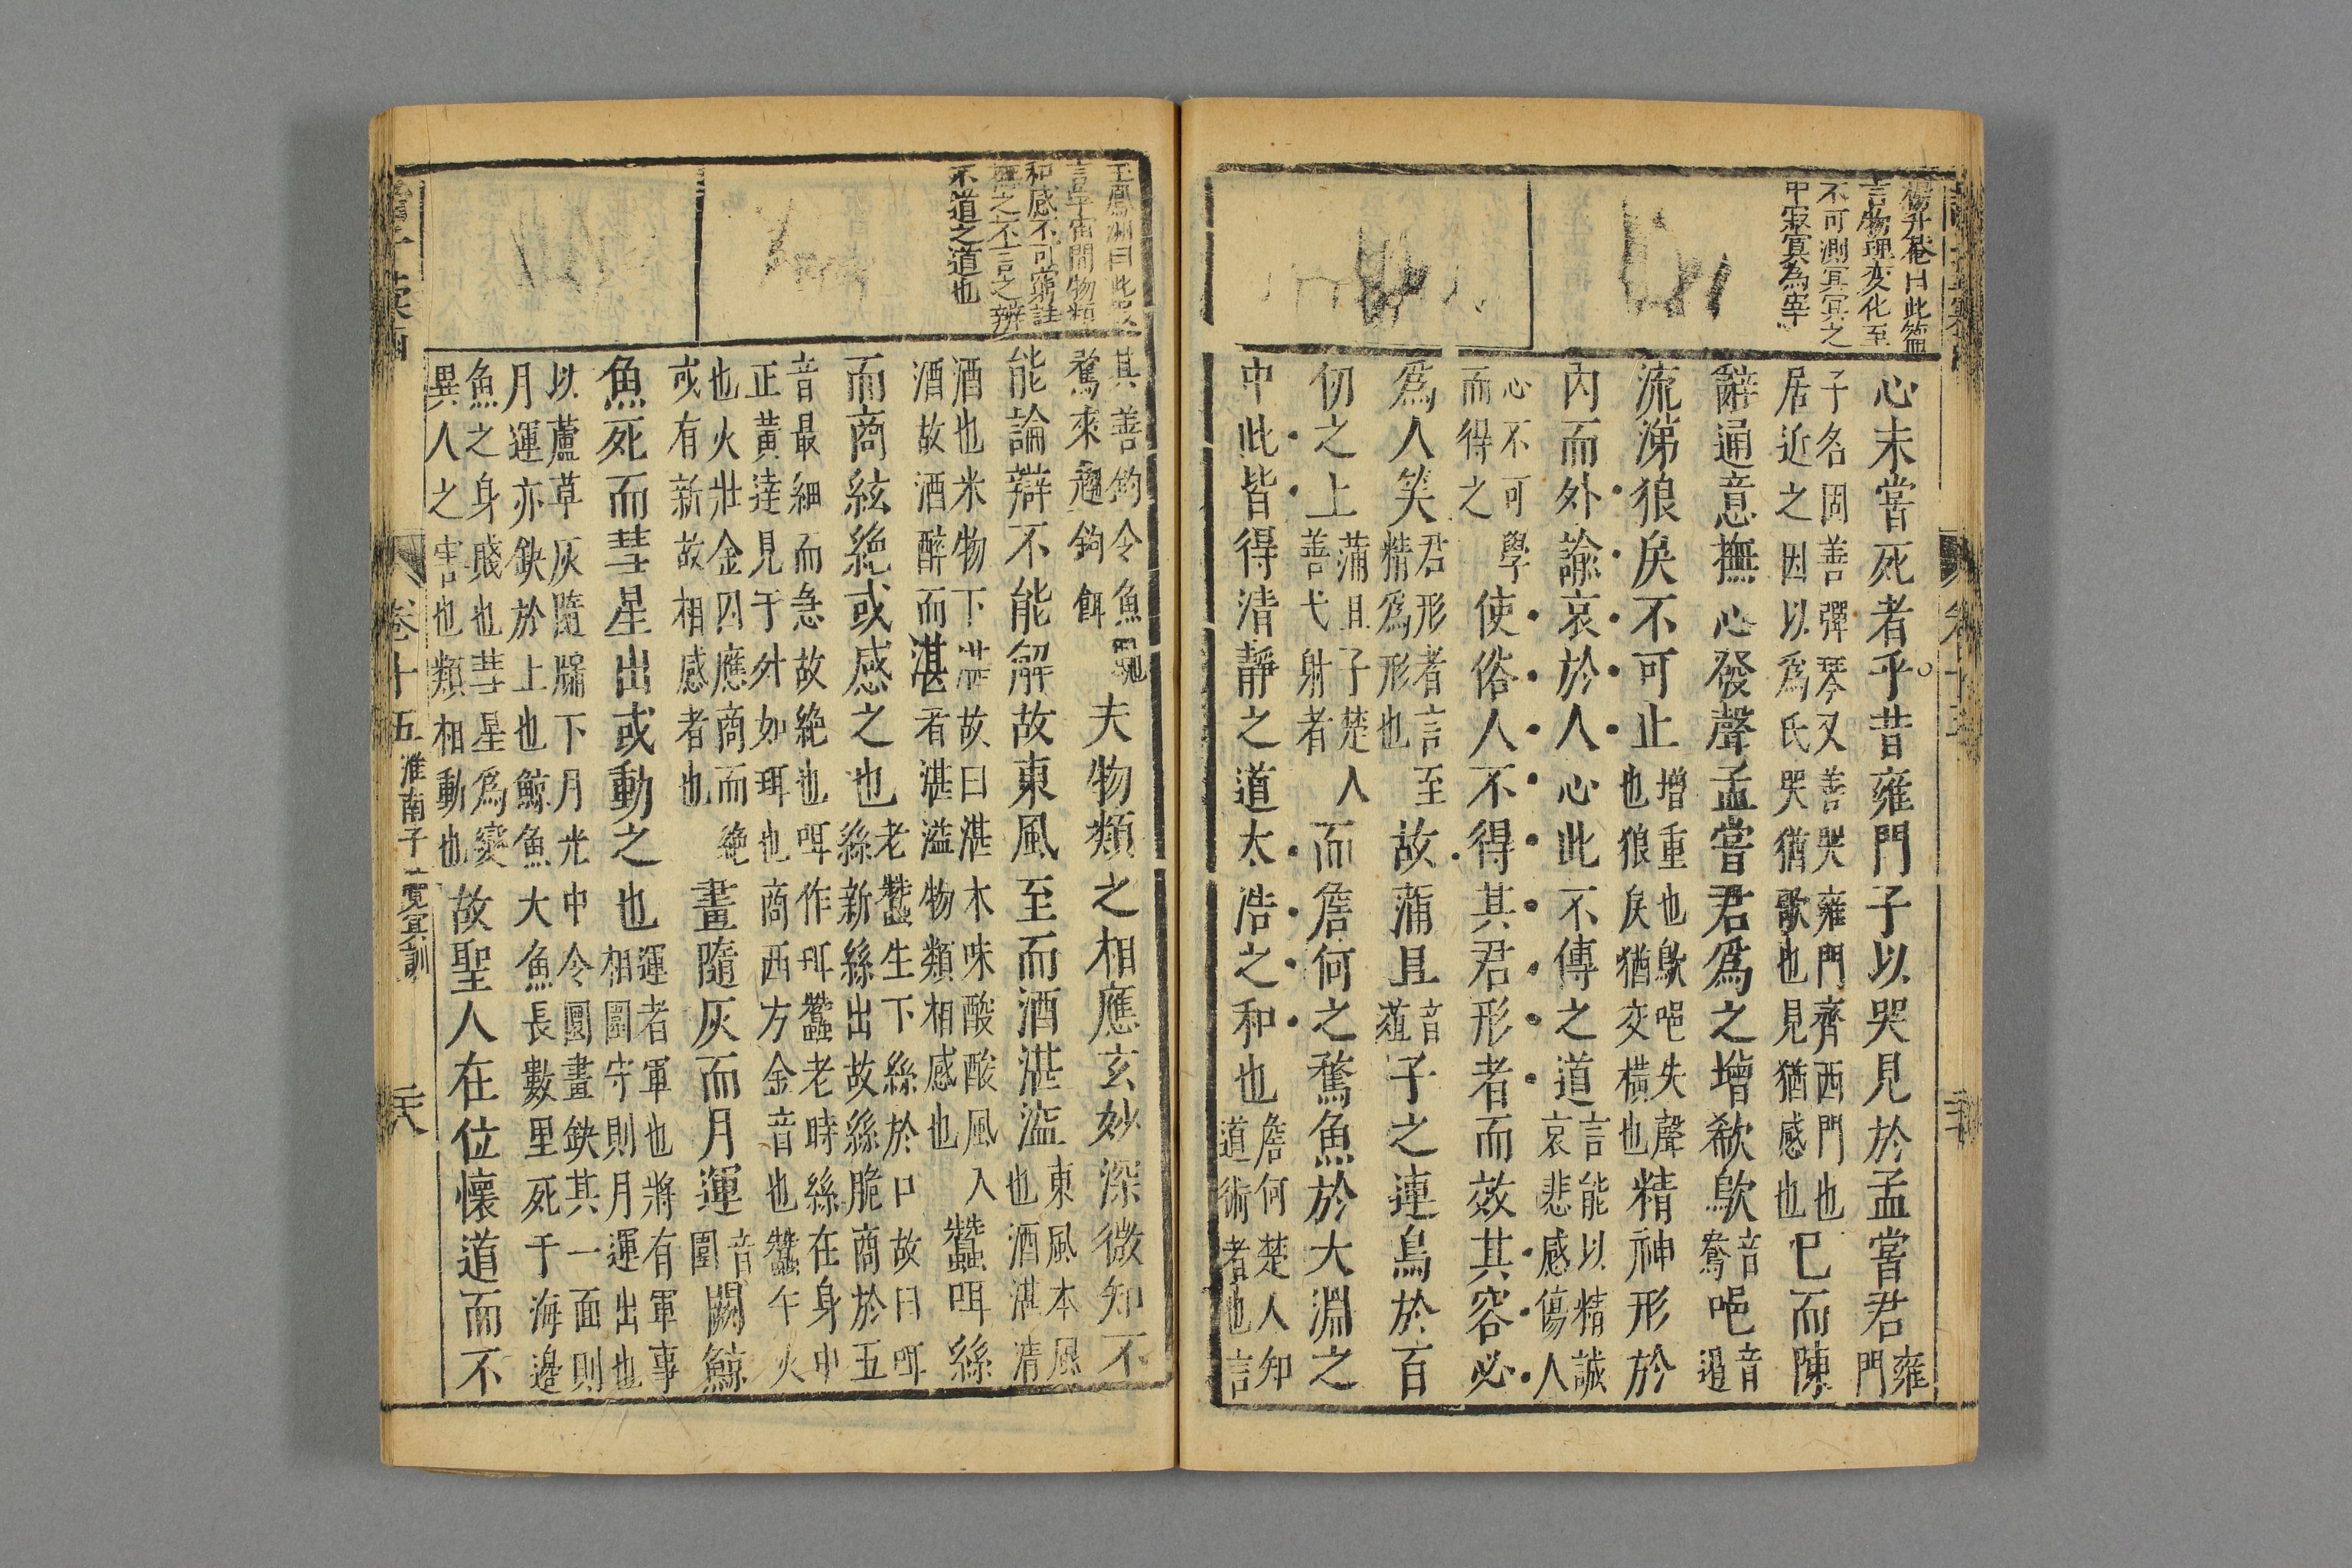 楊升菴曰此篇
言物理变化至
不可測冥冥之
中寂寞為宰
心未嘗死者乎昔雍門子以哭見於孟嘗君雍門
子名周善彈琴又善哭雍門齊西門也
居近之因以爲氏哭猶歌也見猶感也
已而陳
辭通意撫心發聲孟嘗君爲之增欷歍音鴦唈音遏
流涕狼戾不可止增重也歍唈失聲也狼戾猶交橫也精神形於
内而外諭哀於人心此不傳之道言能以精誠哀悲感傷人
心不可學而得之使俗人不得其君形者而效其容必
爲人笑君形者言至精爲形也故蒲且音苴子之連鳥於百
仞之上蒲且子楚人善弋射者而詹何之鶩魚於大淵之
中此皆得清靜之道太浩之和也詹何楚人知道術者也言
王鳳洲曰此段
言宇宙間物類
和感不可窮詰
無之不言之辨
不道之道也
其善釣令魚馳
鶩來趨鉤餌
夫物類之相應玄妙深微知不
能論辯不能解故東風至而酒湛溢東風本風也酒湛清
酒也米物下湛故曰湛木味酸酸風入
酒故酒醉而湛者湛溢物類相感也
蠶咡絲
而商絃絶或感之也老蠶生下絲於口故曰咡
絲新絲出故絲脆商於五
音最細而急故絶也咡作珥蠶老時絲在身中
正黃達見于外如珥也商西方金音也蠶午火
也火壯金囚應商而絶
或有新故相感者也
畫隨灰而月運音圍闕鯨
魚死而彗星出或動之也運者軍也將有軍事
相圍守則月運出也
以蘆草灰隨牖下月光中令圜畫缺其一面則
月運亦缺於上也鯨魚大魚長數里死于海邊
魚之身賤也彗星爲變
異人之害也類相動也
故聖人在位懷道而不
卷十五 淮南子 覽冥訓